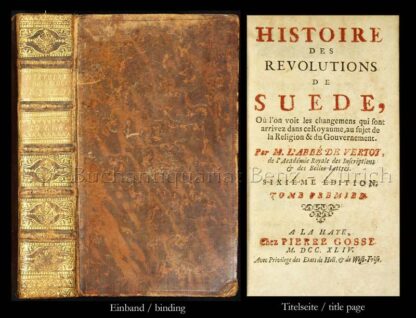 HISTOIRE
DES
REVOLUTIONS
DE
SUEDE,
Où l'on voit les changemens qui sont
arrivez dans ce Royaume, au sujet de
la Religion & du Gouvernement.
Par M. L'ABBÉ DE VERTOT,
de l'Académie Royale des Inscriptions
& des Belles-Lettres.
SIXIÉME ÉDITION.
TOME PREMIER.
A LA HAYE,
Chez PIERRE GOSSE.
M. DCC. XLIV.
Avec Privilege des Etats de Holl. & de West-Frise.
Buchantiquariat Benz - Zürich
Einband / binding
Titelseite / title page